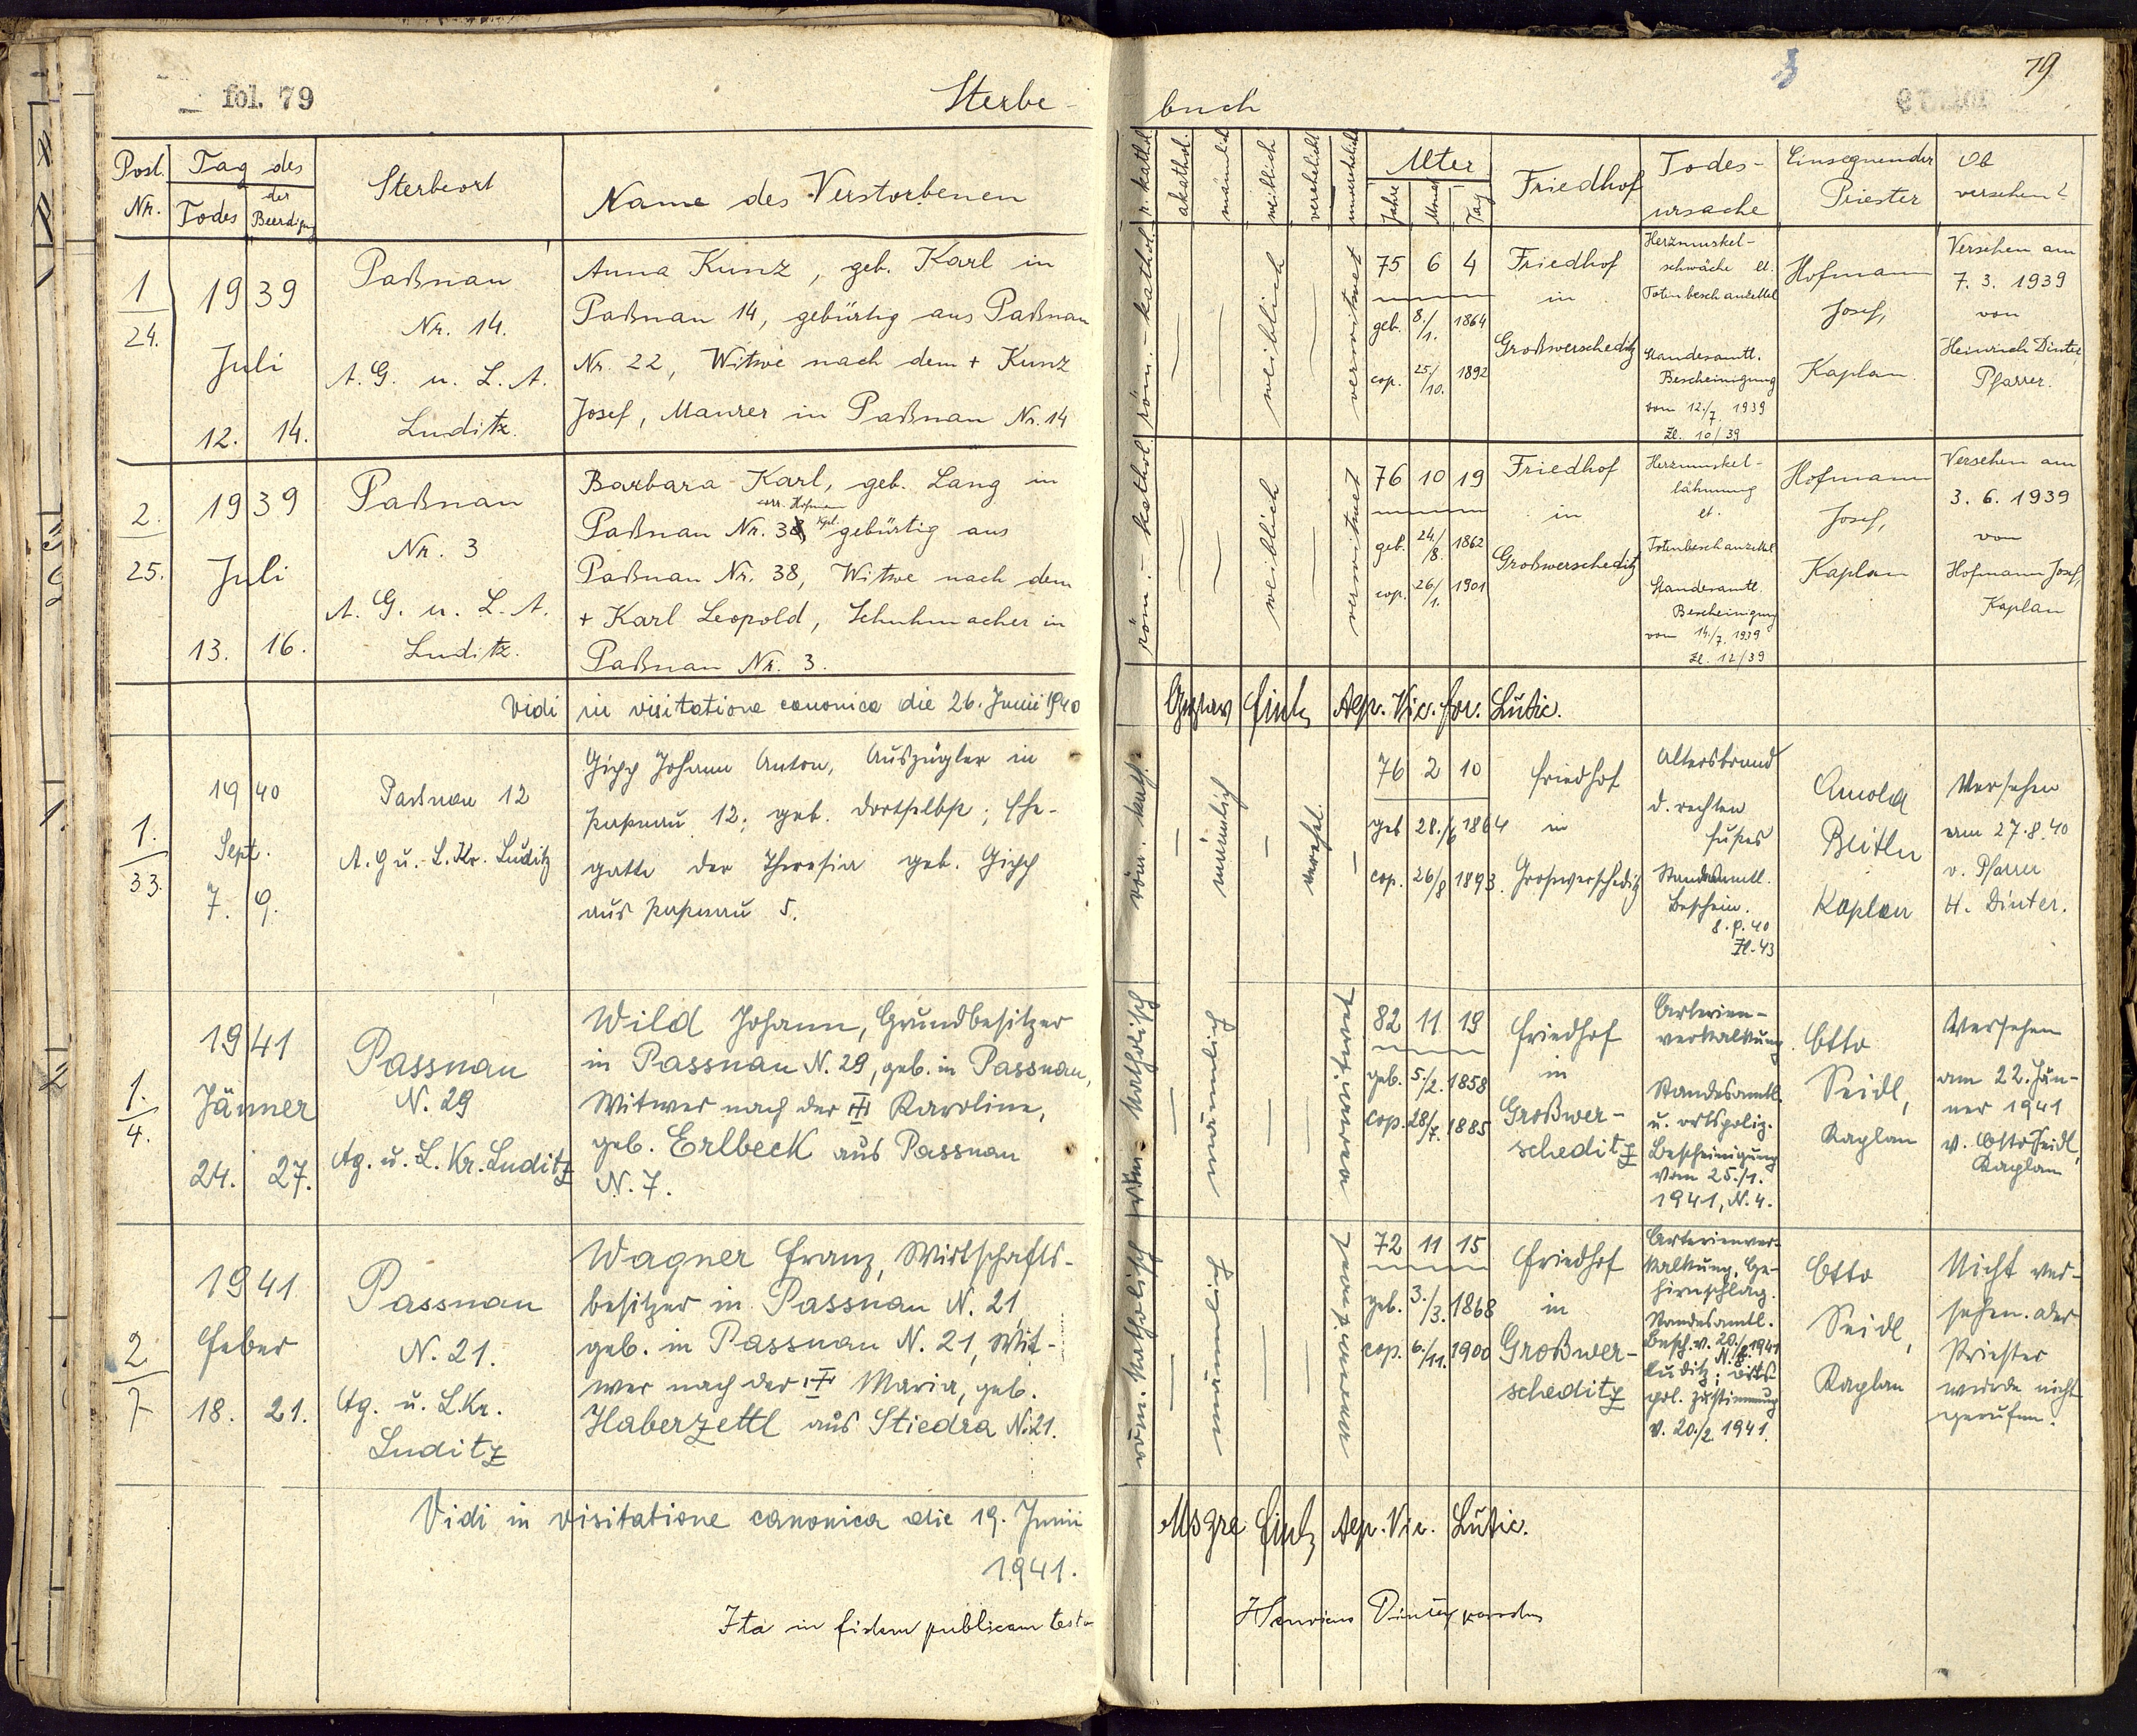 fol. 79
Sterbe-
buch
79
Post. Nr.
Tag des
Todes
der Beerdigung
Sterbeort
Name des Verstorbenen
r. kathol.
akathol.
männlich
weiblich
verehelicht
unverehelicht
Alter
Jahre
Monat
Tag
Friedhof
Todes-
ursache
Einsegnender
Priester
Ob
versehen?
1
24.
19 39
Juli
12. 14.
Paßnau
Nr. 14.
A. G. u. L. A.
Luditz.
Anna Kunz, geb. Karl in
Paßnau 14, gebürtig aus Paßnau
Nr. 22, Witwe nach dem + Kunz
Josef, Maurer in Paßnau Nr. 14
röm. - kathol.
weiblich
verwitwet
75 6 4
geb. 8./1. 1864
cop. 25/10. 1892
Friedhof
in
Großwerscheditz
Herzmuskel-
schwäche lt.
Totenbeschauzettel
Standesamtl.
Bescheinigung
vom 12./7. 1939
Zl. 10/39
Hofmann
Josef,
Kaplan.
Versehen am
7. 3. 1939
von
Heinrich Dinter,
Pfarrer.
2.
25.
19 39
Juli
13. 16.
Paßnau
Nr. 3
A. G. u. L. A.
Luditz.
Barbara Karl, geb. Lang in
corr. Hofmann
Kpl.
Paßnau Nr. 38, gebürtig aus
Paßnau Nr. 38, Witwe nach dem
+ Karl Leopold, Schuhmacher in
Paßnau Nr. 3.
röm. - kathol.
weiblich
verwitwet
76 10 19
geb. 24/8. 1862
cop. 26/1. 1901
Friedhof
in
Großwerscheditz
Herzmuskel-
lähmung
lt.
Totenbeschauzettel
Standesamtl.
Bescheinigung
vom 14./7. 1939
Zl. 12/39
Hofmann
Josef,
Kaplan
Versehen am
3. 6. 1939
von
Hofmann Josef,
Kaplan
Vidi in visitatione canonica die 26. Junii 1940
Gustav Vic. for. Lutic.
1.
33.
19 40
Sept.
7. 9.
Paßnau 12
A. G u. L. Kr. Luditz
Gipp Johann Anton, Auszügler in
Passnau 12; geb. dortselbst; Ehe-
gatte der Theresia geb. Gipp
aus Passnau 5.
röm. kath.
männlich
verehel.
76 2 10
geb 28./6 1864
cop. 26/8 1893.
Friedhof
in
Grosswerscheditz
Altersbrand
d. rechten
Fußes
Standesamtl.
Beschein.
8. 9. 40
Zl. 43
Arnold
Beitler
Kaplan
Versehen
am 27. 8. 40
v. Pfarrer
H. Dinter.
1.
4.
19 41
Jänner
24. 27.
Passnau
N. 29
Ag. u. L. Kr. Luditz
Wild Johann, Grundbesitzer
in Passnau N. 29, geb. in Passnau,
Witwer nach der + Karoline,
geb. Erlbeck aus Passnau
N. 7.
röm. katholisch
männlich
verwitwet
82 11 19
geb. 5./2. 1858
cop. 28/7. 1885
Friedhof
in
Großwer-
scheditz
Arterien-
verkalkung.
Standesamtl.
u. ortspoliz.
Bescheinigung
vom 25./1.
1941, N. 4.
Otto
Seidl,
Kaplan
Versehen
am 22. Jän-
ner 1941
v. Otto Seidl,
Kaplan
2
7
19 41
Feber
18. 21.
Passnau
N. 21.
Ag. u. L.Kr.
Luditz
Wagner Franz, Wirtschafts-
besitzer in Passnau N. 21,
geb. in Passnau N. 21, Wit-
wer nach der + Maria, geb.
Haberzettl aus Stiedra N. 21.
röm. katholisch
männlich
verwitwet
72 11 15
geb. 3./3. 1868
cop. 6./11. 1900
Friedhof
in
Großwer-
scheditz
Arterienver-
kalkung, Ge-
hirnschlag.
Standesamtl.
Besch. v. 20./2. 1941
Luditz; N. 8 orts-
pol. Zustimmung
v. 20./2. 1941.
Otto
Seidl,
Kaplan
Nicht ver-
sehen. Der
Priester
wurde nicht
gerufen.
Vidi in visitatione canonica die 19. Junii
1941.
Vic. Lutic.
Ita in fidem publicam testor
Henricus Dinter parochus